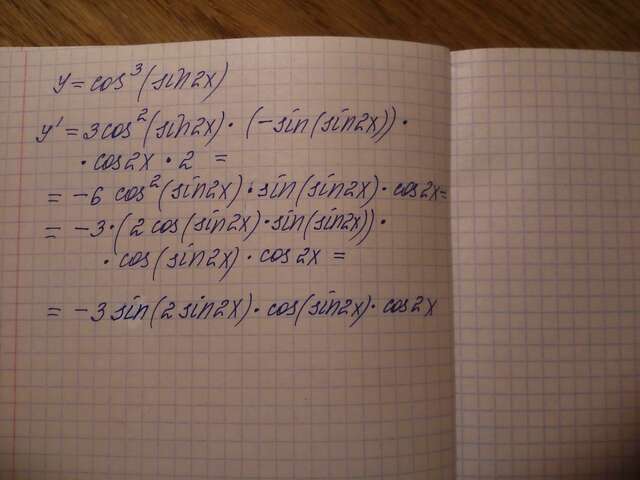 y = cos³(sin2x)
y' = 3cos²(sin2x)·(-sin(sin2x))·
·cos2x·2 =
= -6 cos²(sin2x)·sin(sin2x)·cos2x=
= -3·(2cos(sin2x)·sin(sin2x))·
·cos(sin2x)·cos2x =
= -3sin(2sin2x)·cos(sin2x)·cos2x